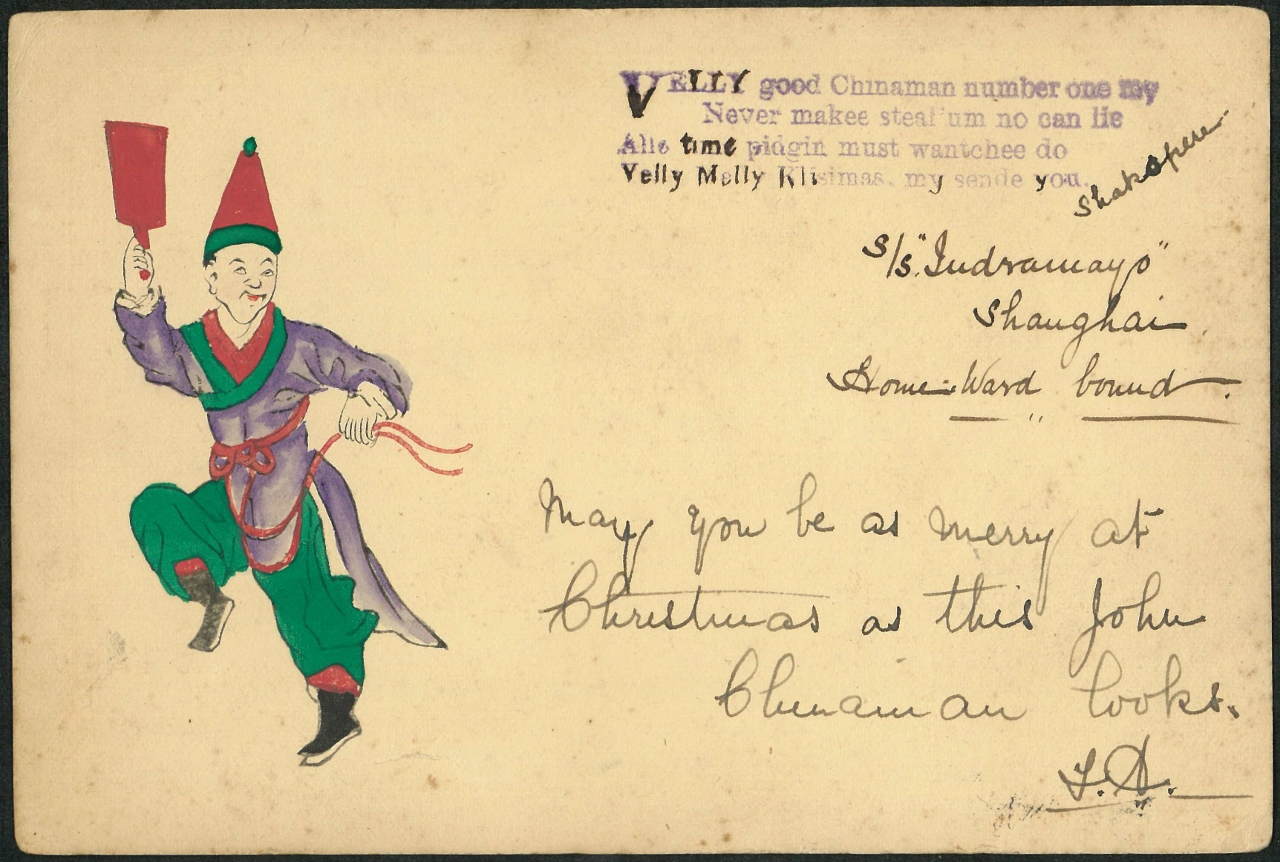 VELLY good Chinaman number one my
Never makee steal'um no can lie
Alle time pidgin must wantchee do
Velly Melly Klisimas. my sende you.
Shakspere
S/S. "Indramayo"
Shanghai
Home-Ward bound.
May you be as merry at
Christmas as this John
Chinaman looks.